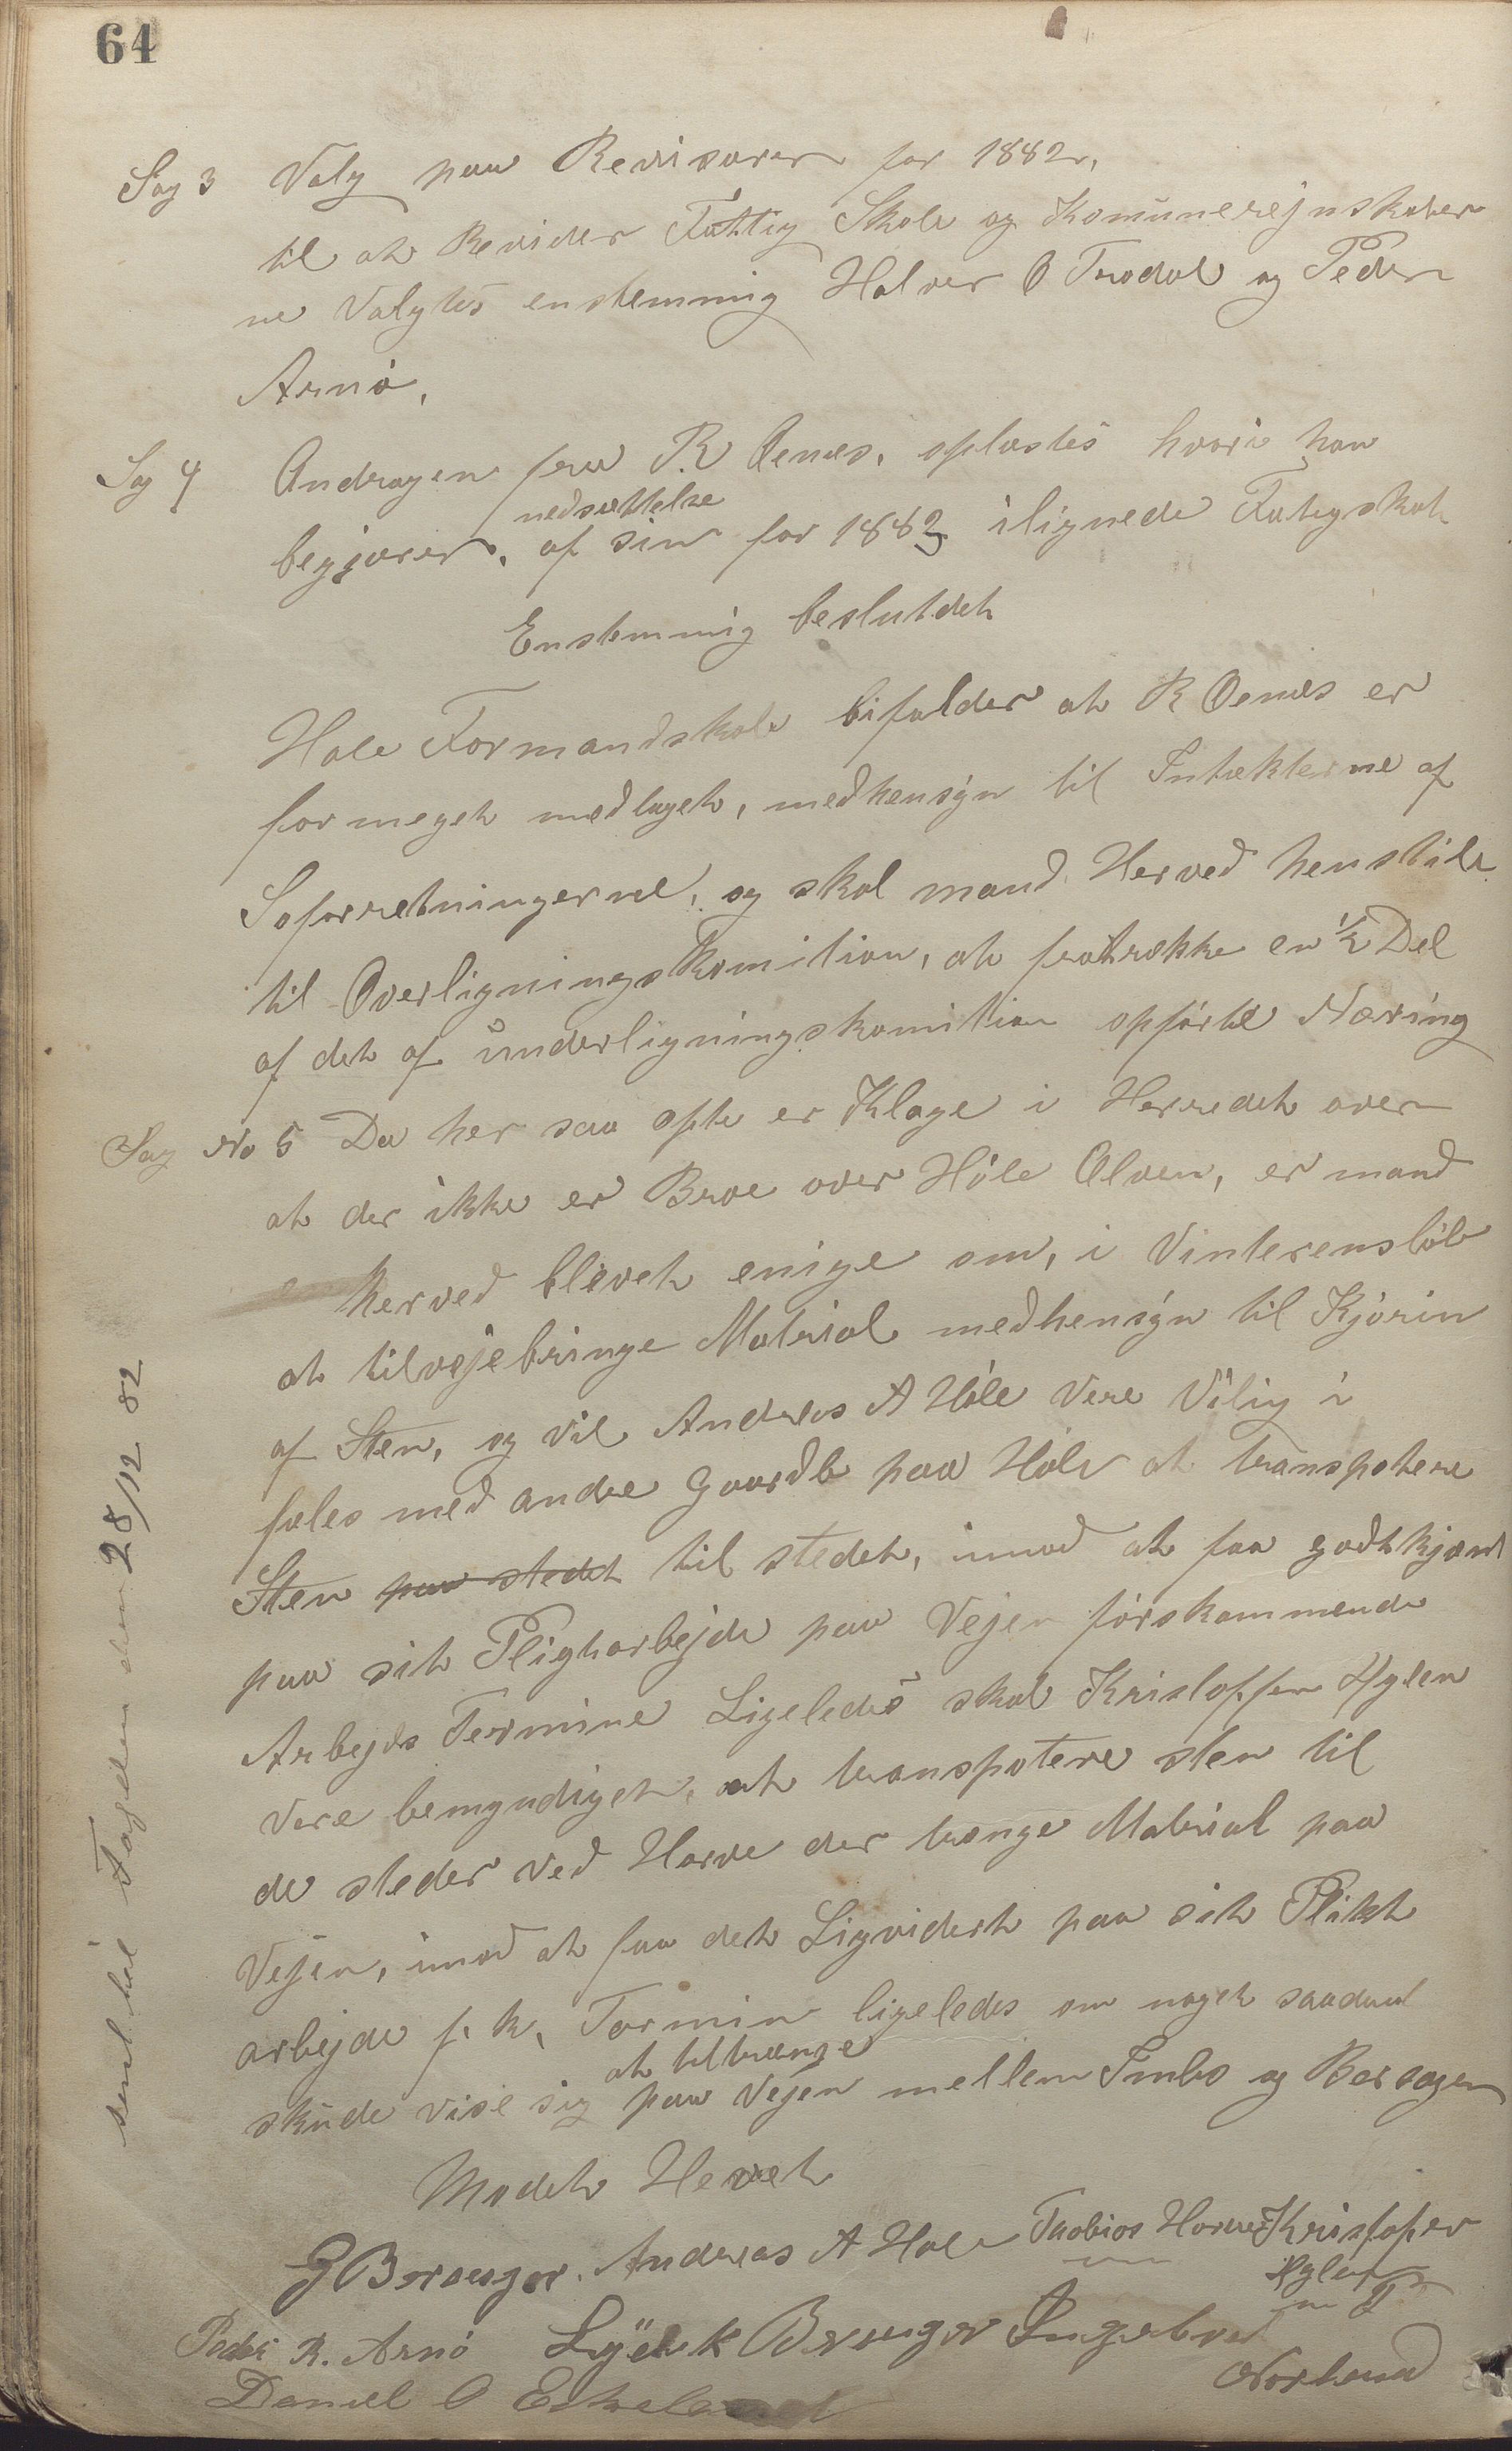 64
Sag 3 Valg paa Revisorer for 1882,
til at Revider Fattig Skole og Komunerejnskaber
ne Valgtes enstemmig Halvor O Trodal og Peder
Arnö,
Sag 4 Andragen fra R Oenæs, oplæstes hvori han
nedsættelse
begjærer, af sin for 1883 ilignede Fatigskat
Enstemmig besluttdet
Hole Formandskab bifalder at R Oenæs er
formeget medtaget, medhensyn til Intækterne af
Soforretningerne, og skal mand Herved henstile
til Overligningskomition, at fratrække en 1/2 Del
af det af underligningskomition opförte Næring
Sag No 5 Da her saa ofte er Klage i Herredet over
at der ikke er Broe over Höle Elven, er mand
herved blevet enige om, i Vinterenslöb
at tilvejebringe Matrial medhensyn til Kjörin
af Sten, og vil Andreas A Höle Vere Vilig i
feles med andre Gaardb paa Höle at transpotere
Sten paa stedet til stedet, imod at faa godtkjent
paa sit Pligtarbejde paa Vejen förskommende
Arbejds Termine Ligeledes skal Kristoffer Hylen
Vere bemyndiget, at transpotere sten til
de steder ved Horve der trænge Matrial paa
Vejen, imod at faa det Liqvidert paa sit Plikt
arbejde f. k, Tormin ligeledes om noget saadant
at tiltrænge
skude vise sig paa Vejen mellem Imbs og Bersagen
Modet Hevet
G Bersagor. Andreas A Hole Taabios Horve Kristofer
Hylen
Peder R. Arnö Lyder K Bersagor Ingebret
Norland
Daniel O Eskeland
sent til Fogden den 28/12 82